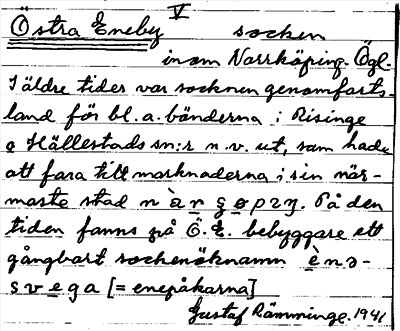 V
Östra Eneby socken
inom Norrköping. Ögl.
I äldre tider var socknen genomfarts-
land för bl. a. bönderna i Risinge
o Hällestads sn:r n.v. ut, som hade
att fara till marknaderna i sin när-
maste stad På den
tiden fanns på Ö. E. bebyggare ett
gångbart sockenöknamn ènə-
svega [= enepåkarna]
Gustaf Rämminge. 1941